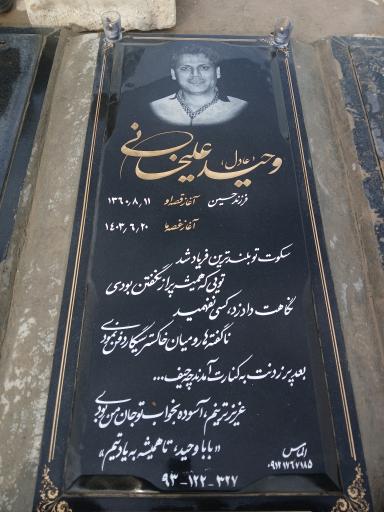 وحید «عادل» علیخانی
فرزند حسین آغاز قصه او ۱۳۶۰٫۸٫۱۱
آغاز غصه ما ۱۴۰۳٫۶٫۲۰
سکوت تو بلندترین فریاد شد
تویی که همیشه پر از نگفتن بودی
نگاهت داد زد، کسی نفهمید
ناگفته هارو میان خاکستر سیگار دفن بودی
بعد پر زدنت به کنارت آمدند چه حیف...
عزیزترینم، آسوده بخواب تو جان من بودی
«بابا وحید، تا همیشه به یادتیم»
الماس
۰۹۱۲۱۷۶۷۱۸۵
۹۳-۱۲۲-۳۲۷